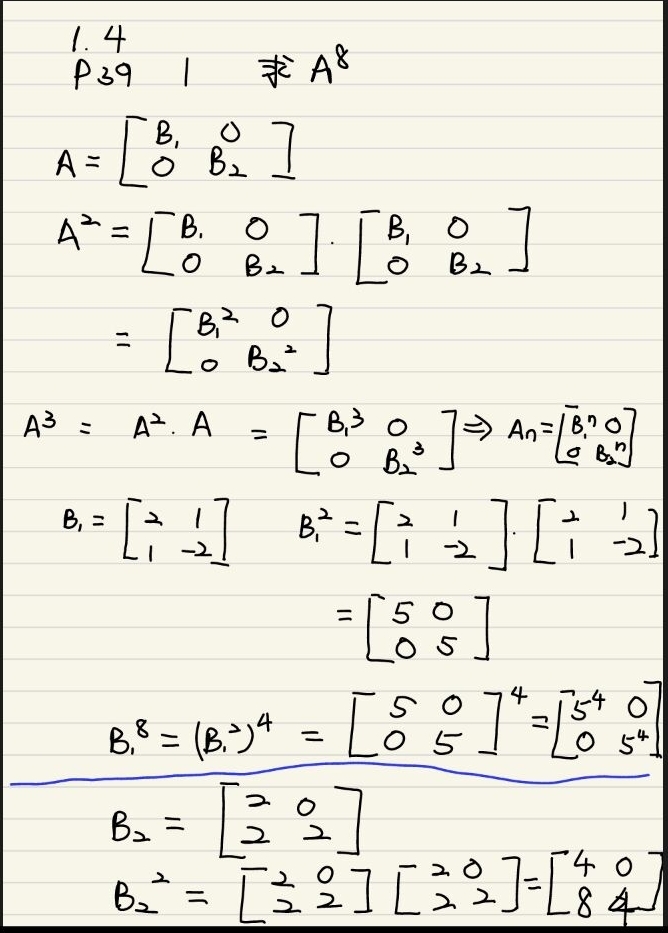 1.4
P39 1 求 A⁸
A = [B₁ 0; 0 B₂]
A² = [B₁ 0; 0 B₂] · [B₁ 0; 0 B₂]
= [B₁² 0; 0 B₂²]
A³ = A² · A = [B₁³ 0; 0 B₂³] ⇒ Aₙ = [B₁ⁿ 0; 0 B₂ⁿ]
B₁ = [2 1; 1 -2] B₁² = [2 1; 1 -2] · [2 1; 1 -2]
= [5 0; 0 5]
B₁⁸ = (B₁²)⁴ = [5 0; 0 5]⁴ = [5⁴ 0; 0 5⁴]
B₂ = [2 0; 2 2]
B₂² = [2 0; 2 2] [2 0; 2 2] = [4 0; 8 4]